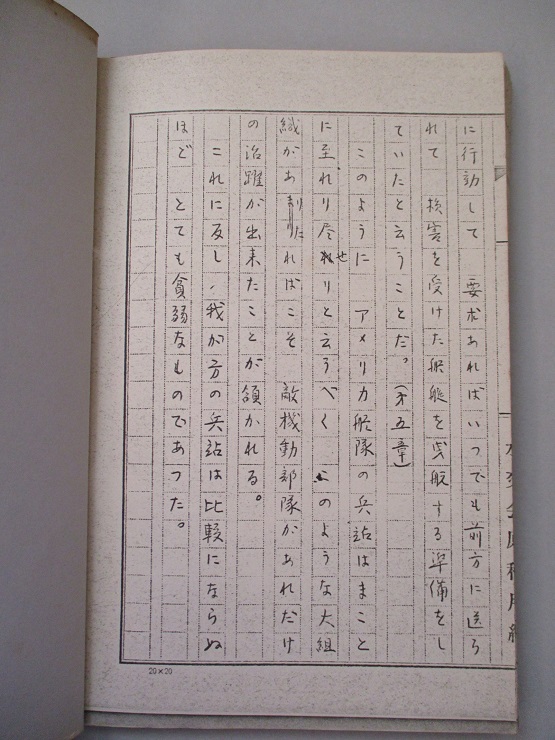 に行動して　要求あればいつでも前方に送ら
れて　損害を受けた艦艇を曳航する準備をし
ていたと云うことだ。(第五章)
このように　アメリカ艦隊の兵站はまこと
に至れり尽せりと云うべく　このような大組
織がありたればこそ　敵機動部隊があれだけ
の活躍が出来たことが頷かれる。
これに反し、我が方の兵站は比較にならぬ
ほど　とても貧弱なものであつた。
20×20